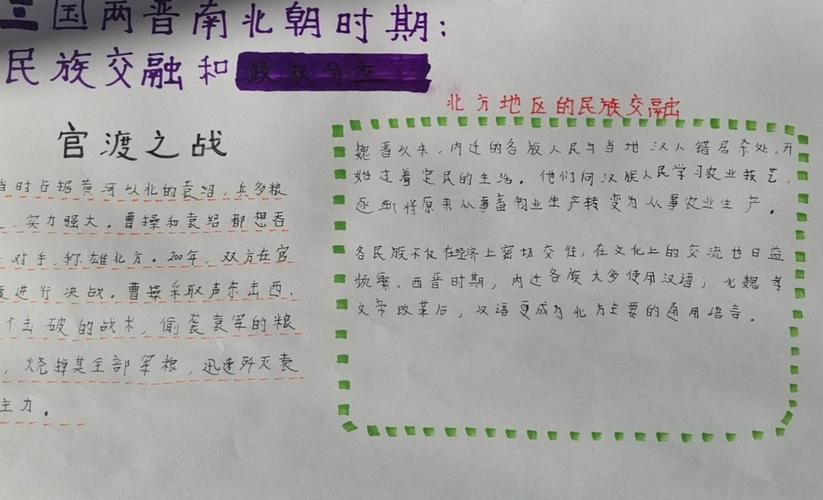 三国两晋南北朝时期：
民族交融和政权分立
官渡之战
当时占据黄河以北的袁绍，兵多粮
，实力强大。曹操和袁绍都想吞
对手，称雄北方。200年，双方在官
渡进行决战。曹操采取声东击西、
击破的战术，偷袭袁军的粮
，烧掉其全部军粮，迅速歼灭袁
主力。
北方地区的民族交融
魏晋以来，内迁的各族人民与当地汉人错居杂处，开
始过着定民的生活。他们向汉族人民学习农业技艺，
逐渐将原来从事畜牧业生产转变为从事农业生产。
各民族不仅在经济上密切交往，在文化上的交流也日益
频繁。西晋时期，内迁各族大多使用汉语；北魏孝
文帝改革后，汉语更成为北方主要的通用语言。